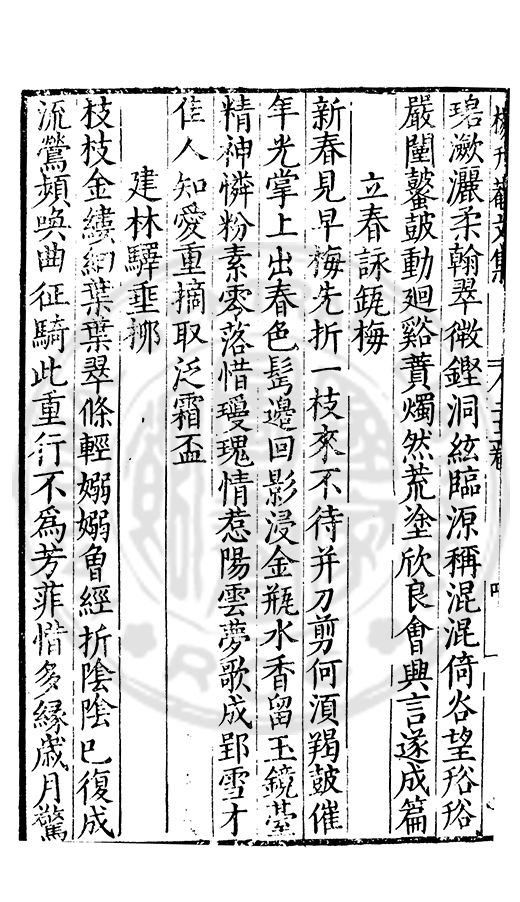 楊升菴文集
碧漱灑柔翰翠微鏗洞絃臨源稱混混倚谷望谽谽
嚴闉鼛鼓動迴谿蕡燭然荒塗欣良會興言遂成篇
立春詠瓶梅
新春見早梅先折一枝來不待并刀剪何須羯鼓催
年光掌上出春色髩邊回影浸金瓶水香留玉鏡臺
精神憐粉素零落惜瓊瑰情惹陽雲夢歌成郢雪才
佳人知愛重摘取泛霜盃
建林驛垂柳
枝枝金縷細葉葉翠條輕嫋嫋曾經折陰陰已復成
流鶯頻喚曲征騎此重行不為芳菲惜多緣歲月驚